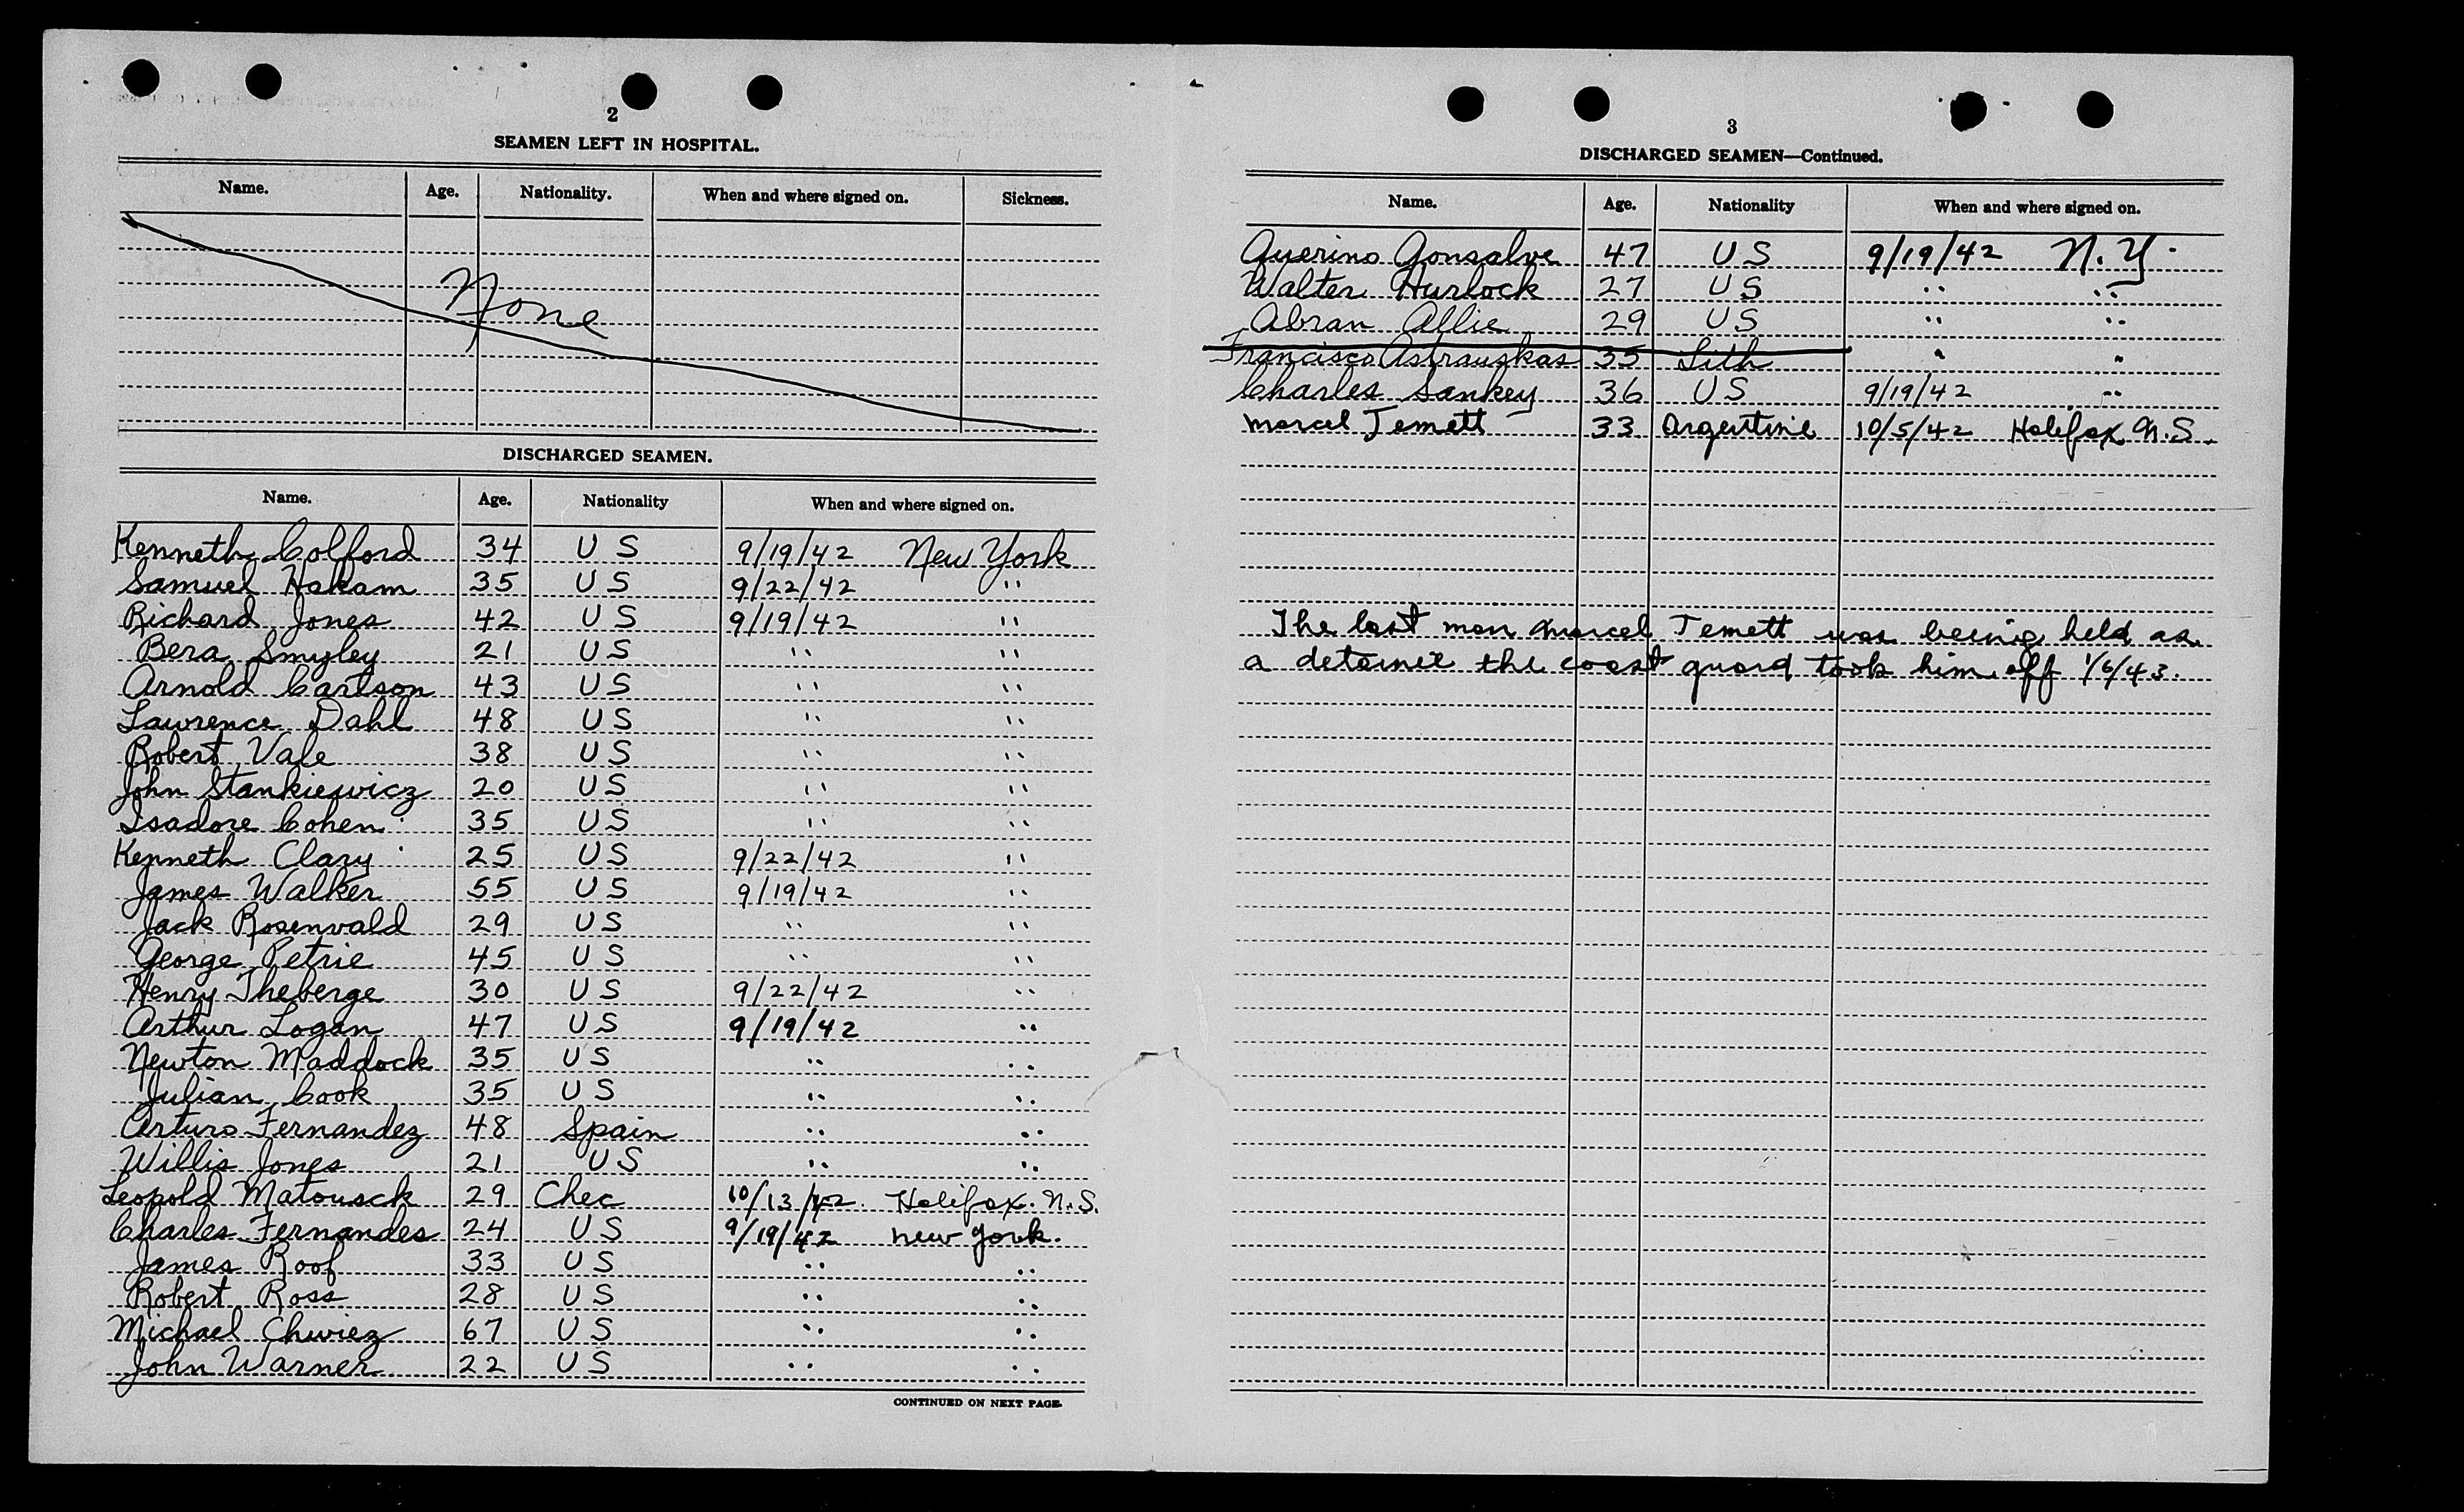 2
SEAMEN LEFT IN HOSPITAL.
Name. Age. Nationality. When and where signed on. Sickness.
None
DISCHARGED SEAMEN.
Name. Age. Nationality When and where signed on.
Kenneth Colford 34 US 9/19/42 New York
Samuel Hakam 35 US 9/22/42 "
Richard Jones 42 US 9/19/42 "
Bera Smyley 21 US " "
Arnold Carlson 43 US " "
Lawrence Dahl 48 US " "
Robert Vale 38 US " "
John Stankiewicz 20 US " "
Isadore Cohen 35 US " "
Kenneth Clary 25 US 9/22/42 "
James Walker 55 US 9/19/42 "
Jack Rosenvald 29 US " "
George Petrie 45 US " "
Henry Theberge 30 US 9/22/42 "
Arthur Logan 47 US 9/19/42 "
Newton Maddock 35 US " "
Julian Cook 35 US " "
Arturo Fernandez 48 Spain " "
Willis Jones 21 US " "
Leopold Matousck 29 Chec 10/13/42 Halifax. N.S.
Charles Fernandes 24 US 9/19/42 new york.
James Roof 33 US " "
Robert Ross 28 US " "
Michael Chwiez 67 US " "
John Warner 22 US " "
CONTINUED ON NEXT PAGE.
3
DISCHARGED SEAMEN—Continued.
Name. Age. Nationality When and where signed on.
Querino Gonsalve 47 US 9/19/42 N.Y.
Walter Hurlock 27 US " "
Abran Allie 29 US " "
Francisco Astrauskas 35 Lith " "
Charles Sankey 36 US 9/19/42 "
Marcel Temett 33 Argentine 10/5/42 Halifax N.S.
The last man Marcel Temett was being held as
a detainee the coast guard took him off 1/6/43.